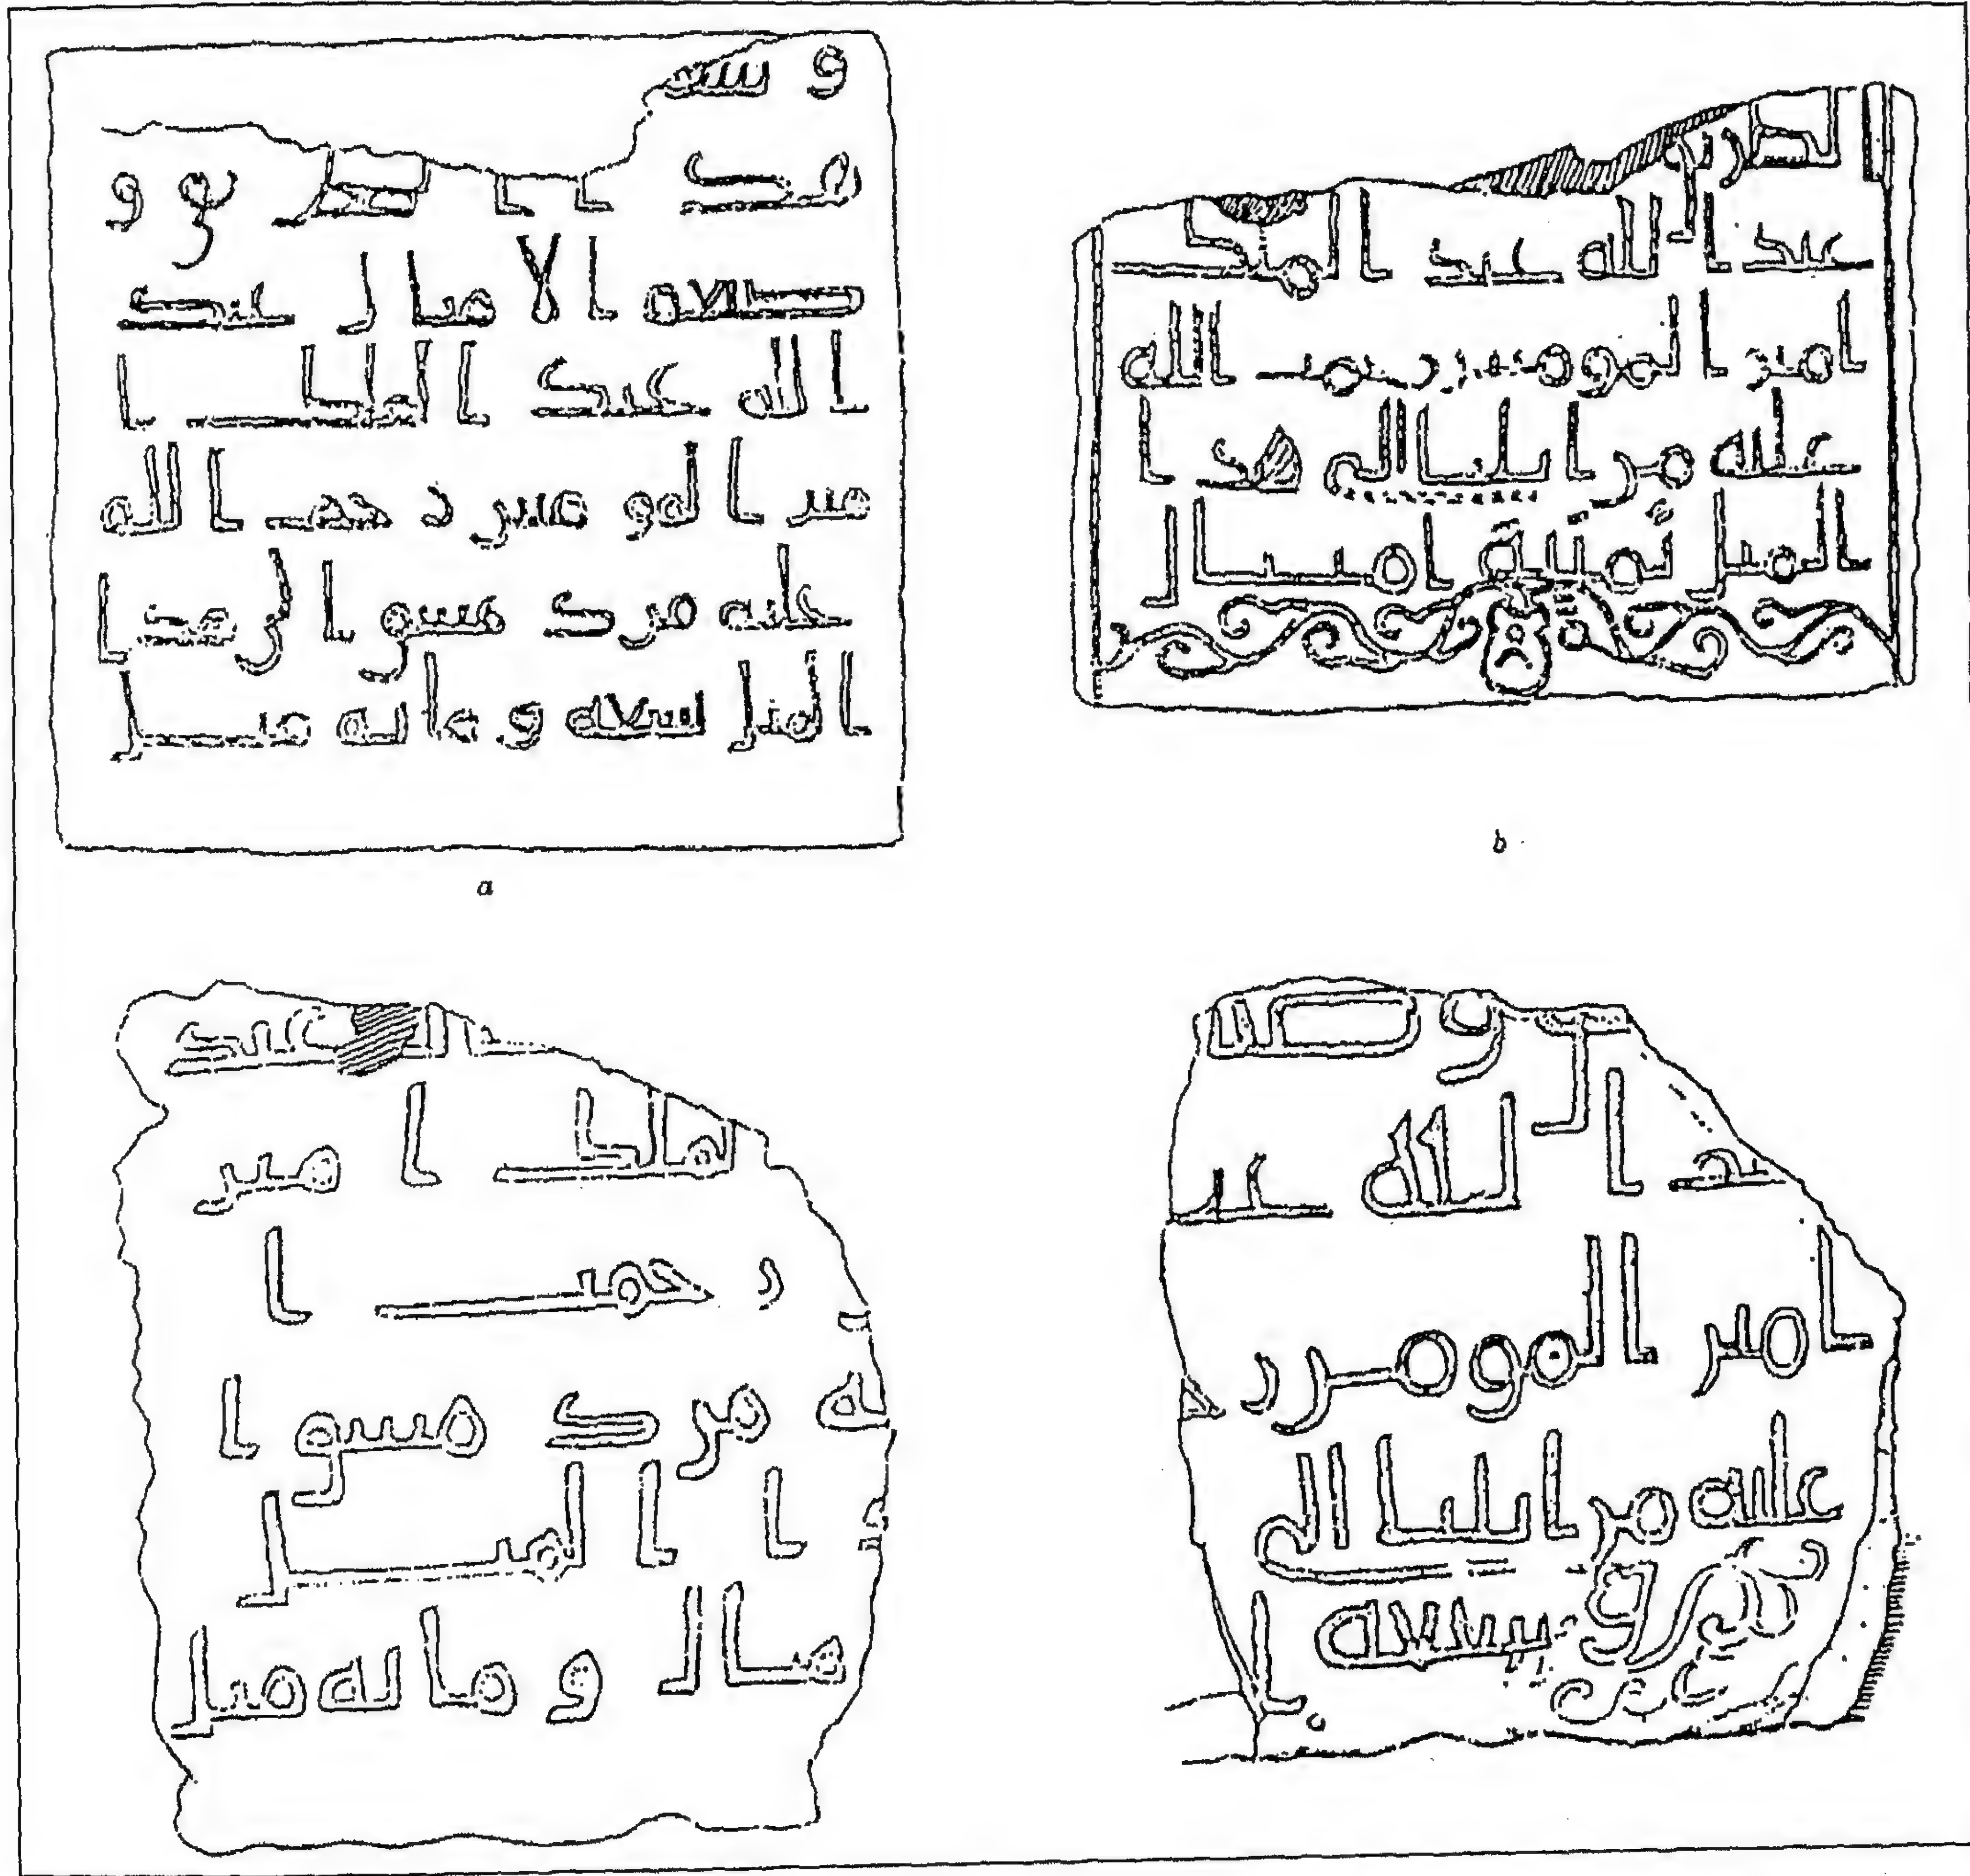 و
هد ا ا لطريق و
صنعه ا لا ميا ل عبد
ا لله عبد ا لملك ا
مير ا لمو منين ر حمت ا لله
عليه من د مشق ا لى هذا
ا لميل تسعه و ما ئه ميل
الطريق
عبد ا لله عبد ا لملك
امير المومنين رحمت الله
عليه من ايليا الى هذا
الميل ثمنية اميال
لله عبد
لملك ا مير
ر حمت ا
ـه من د مشق ا
ا ا لميل
مان و مائه ميل
و صنعـ
ـبد ا لله عبـ
امير المومنين ر حـ
عليه من ايليا الى
سبعه ا
a
b